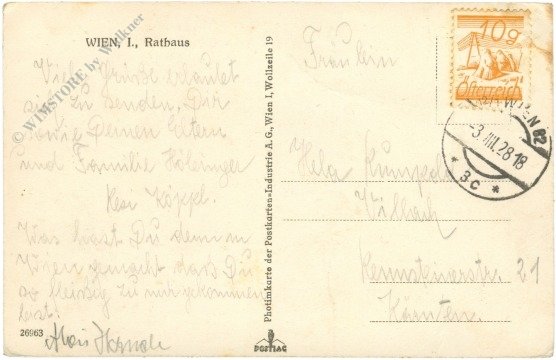 WIEN, I., Rathaus
© WIMSTORE by Walkner
Viele Grüße erlaubt
sich zu senden, Dir
Deinen Eltern
und Familie
Resi Köppl.
Was hast Du denn in
Wien gemacht das Du
so fleißig zu mir gekommen
bist!
26963
Photimkarte der Postkarten-Industrie A. G., Wien I, Wollzeile 19
POSTIAG
10g
Österreich
WIEN 82
-3.VIII.28 18
* 3c *
Fräulein
Villach
21
Kärnten.